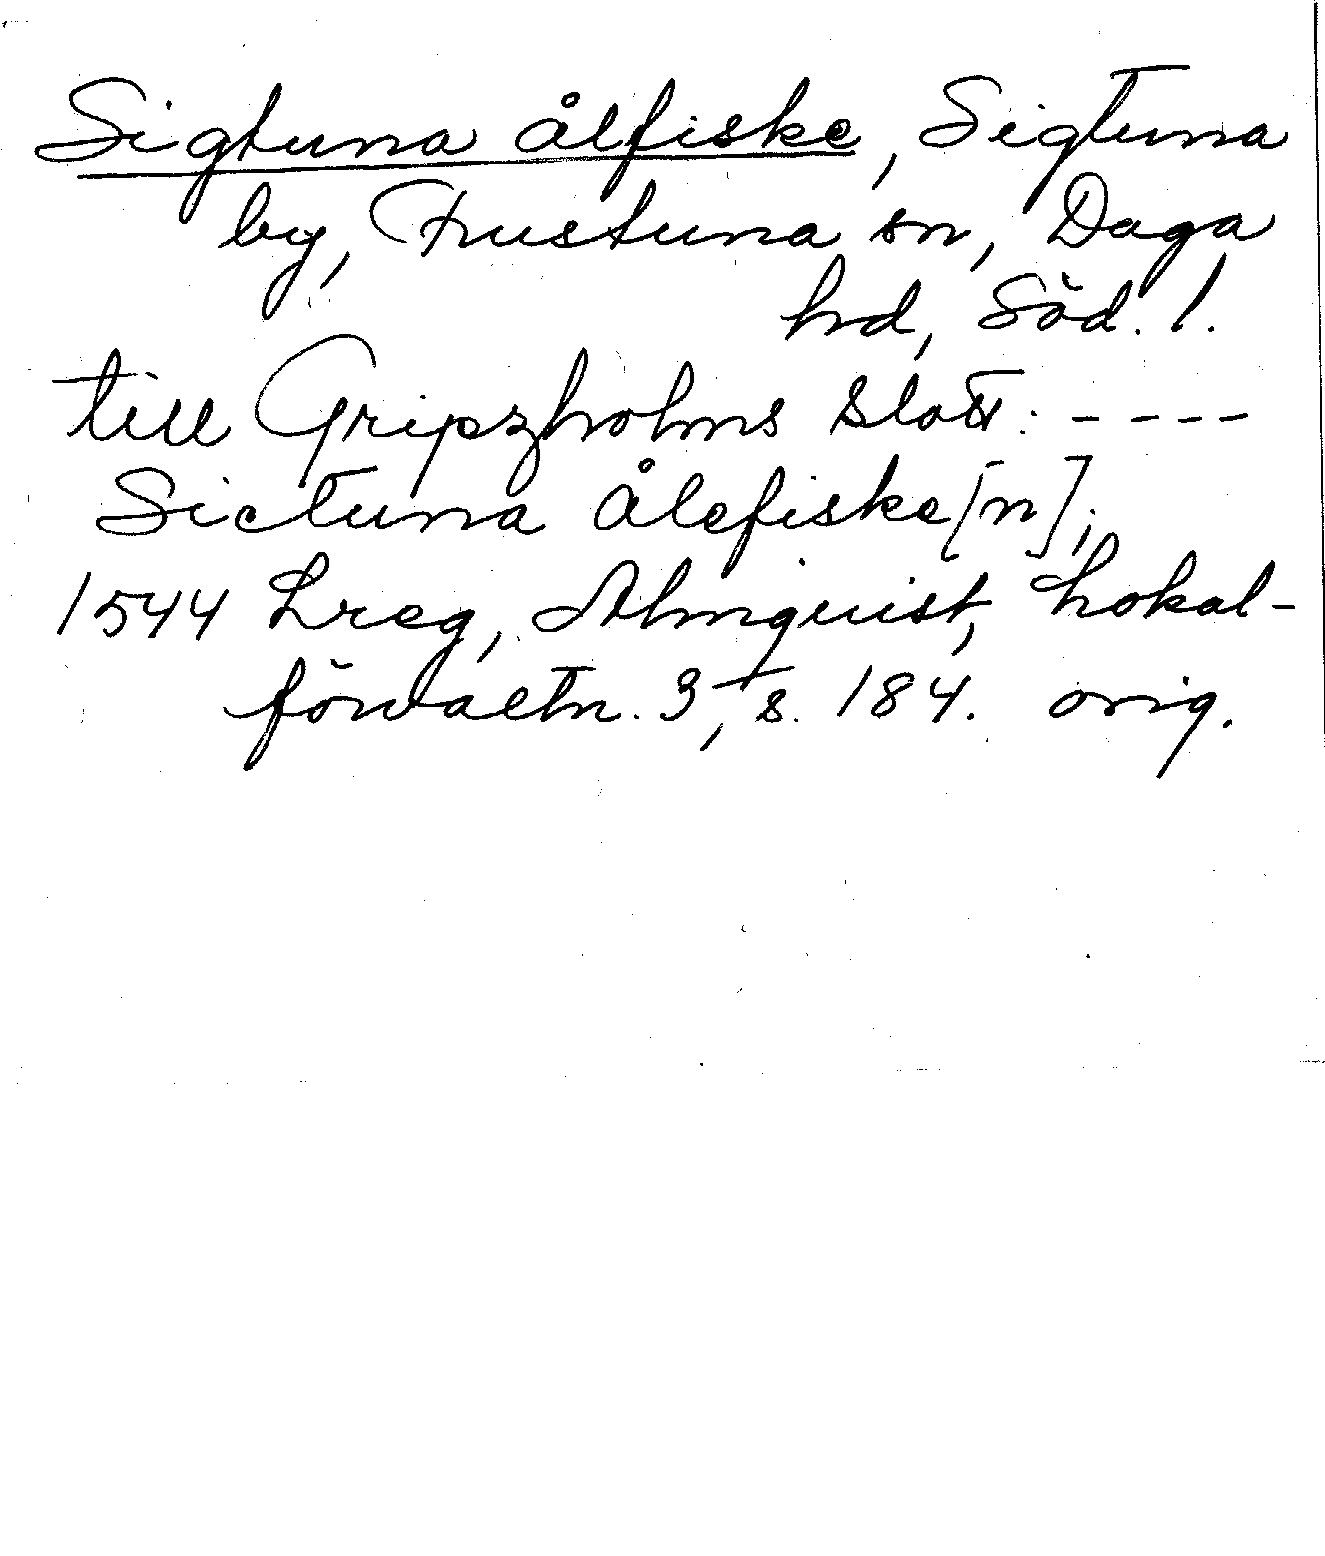 Sigtuna ålfiske, Sigtuna
by, Frustuna sn, Daga
hd, Söd. l.
till Gripzholms Slott: ----
Sictuna Ålefiske[n];
1544 Lreg, Almquist, Lokal-
förvaltn. 3, s. 184. orig.